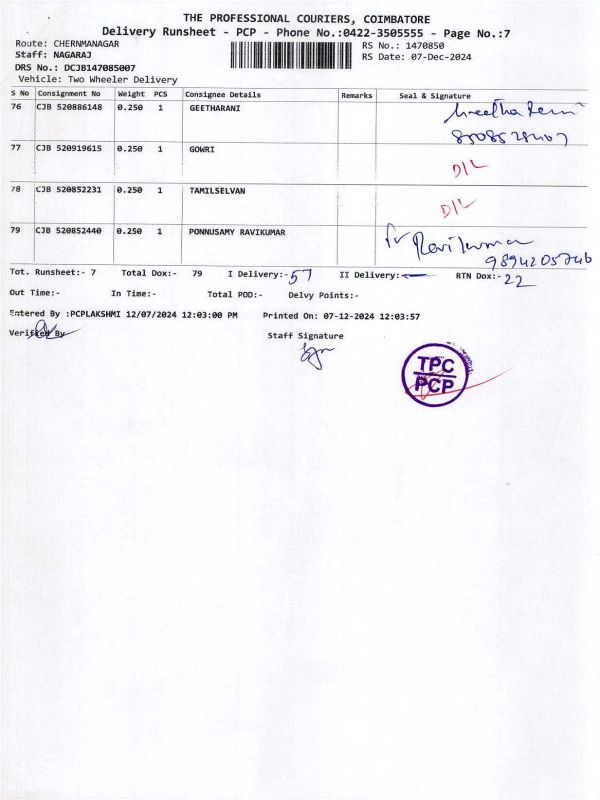 THE PROFESSIONAL COURIERS, COIMBATORE
Delivery Runsheet - PCP - Phone No.:0422-3505555 - Page No.:7
Route: CHERNMANAGAR
RS No.: 1470850
Staff: NAGARAJ
RS Date: 07-Dec-2024
DRS No.: DCJB147085007
Vehicle: Two Wheeler Delivery
S No Consignment No Weight PCS Consignee Details Remarks Seal & Signature
76 CJB 520886148 0.250 1 GEETHARANI
77 CJB 520919615 0.250 1 GOWRI D/L
78 CJB 520852231 0.250 1 TAMILSELVAN D/L
79 CJB 520852440 0.250 1 PONNUSAMY RAVIKUMAR Ravikumar
Tot. Runsheet:- 7 Total Dox:- 79 I Delivery:- 57 II Delivery:- RTN Dox:- 22
Out Time:- In Time:- Total POD:- Delvy Points:-
Entered By :PCPLAKSHMI 12/07/2024 12:03:00 PM Printed On: 07-12-2024 12:03:57
Verified By Staff Signature
TPC
PCP